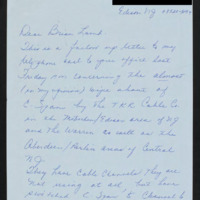 Edison NJ
Dear Brian Lamb
This is a further letter to my
telegram sent to your office last
Friday on concerning the almost
(in my opinion) wipe about of
C. Span by the TKR Cable Co
in the Metuchen/Edison area of NJ
and the Warren as well as the
Aberdeen/ area of Central
NJ.
They have cable channels they are
not using at all, but have
C. Span to Channel 6